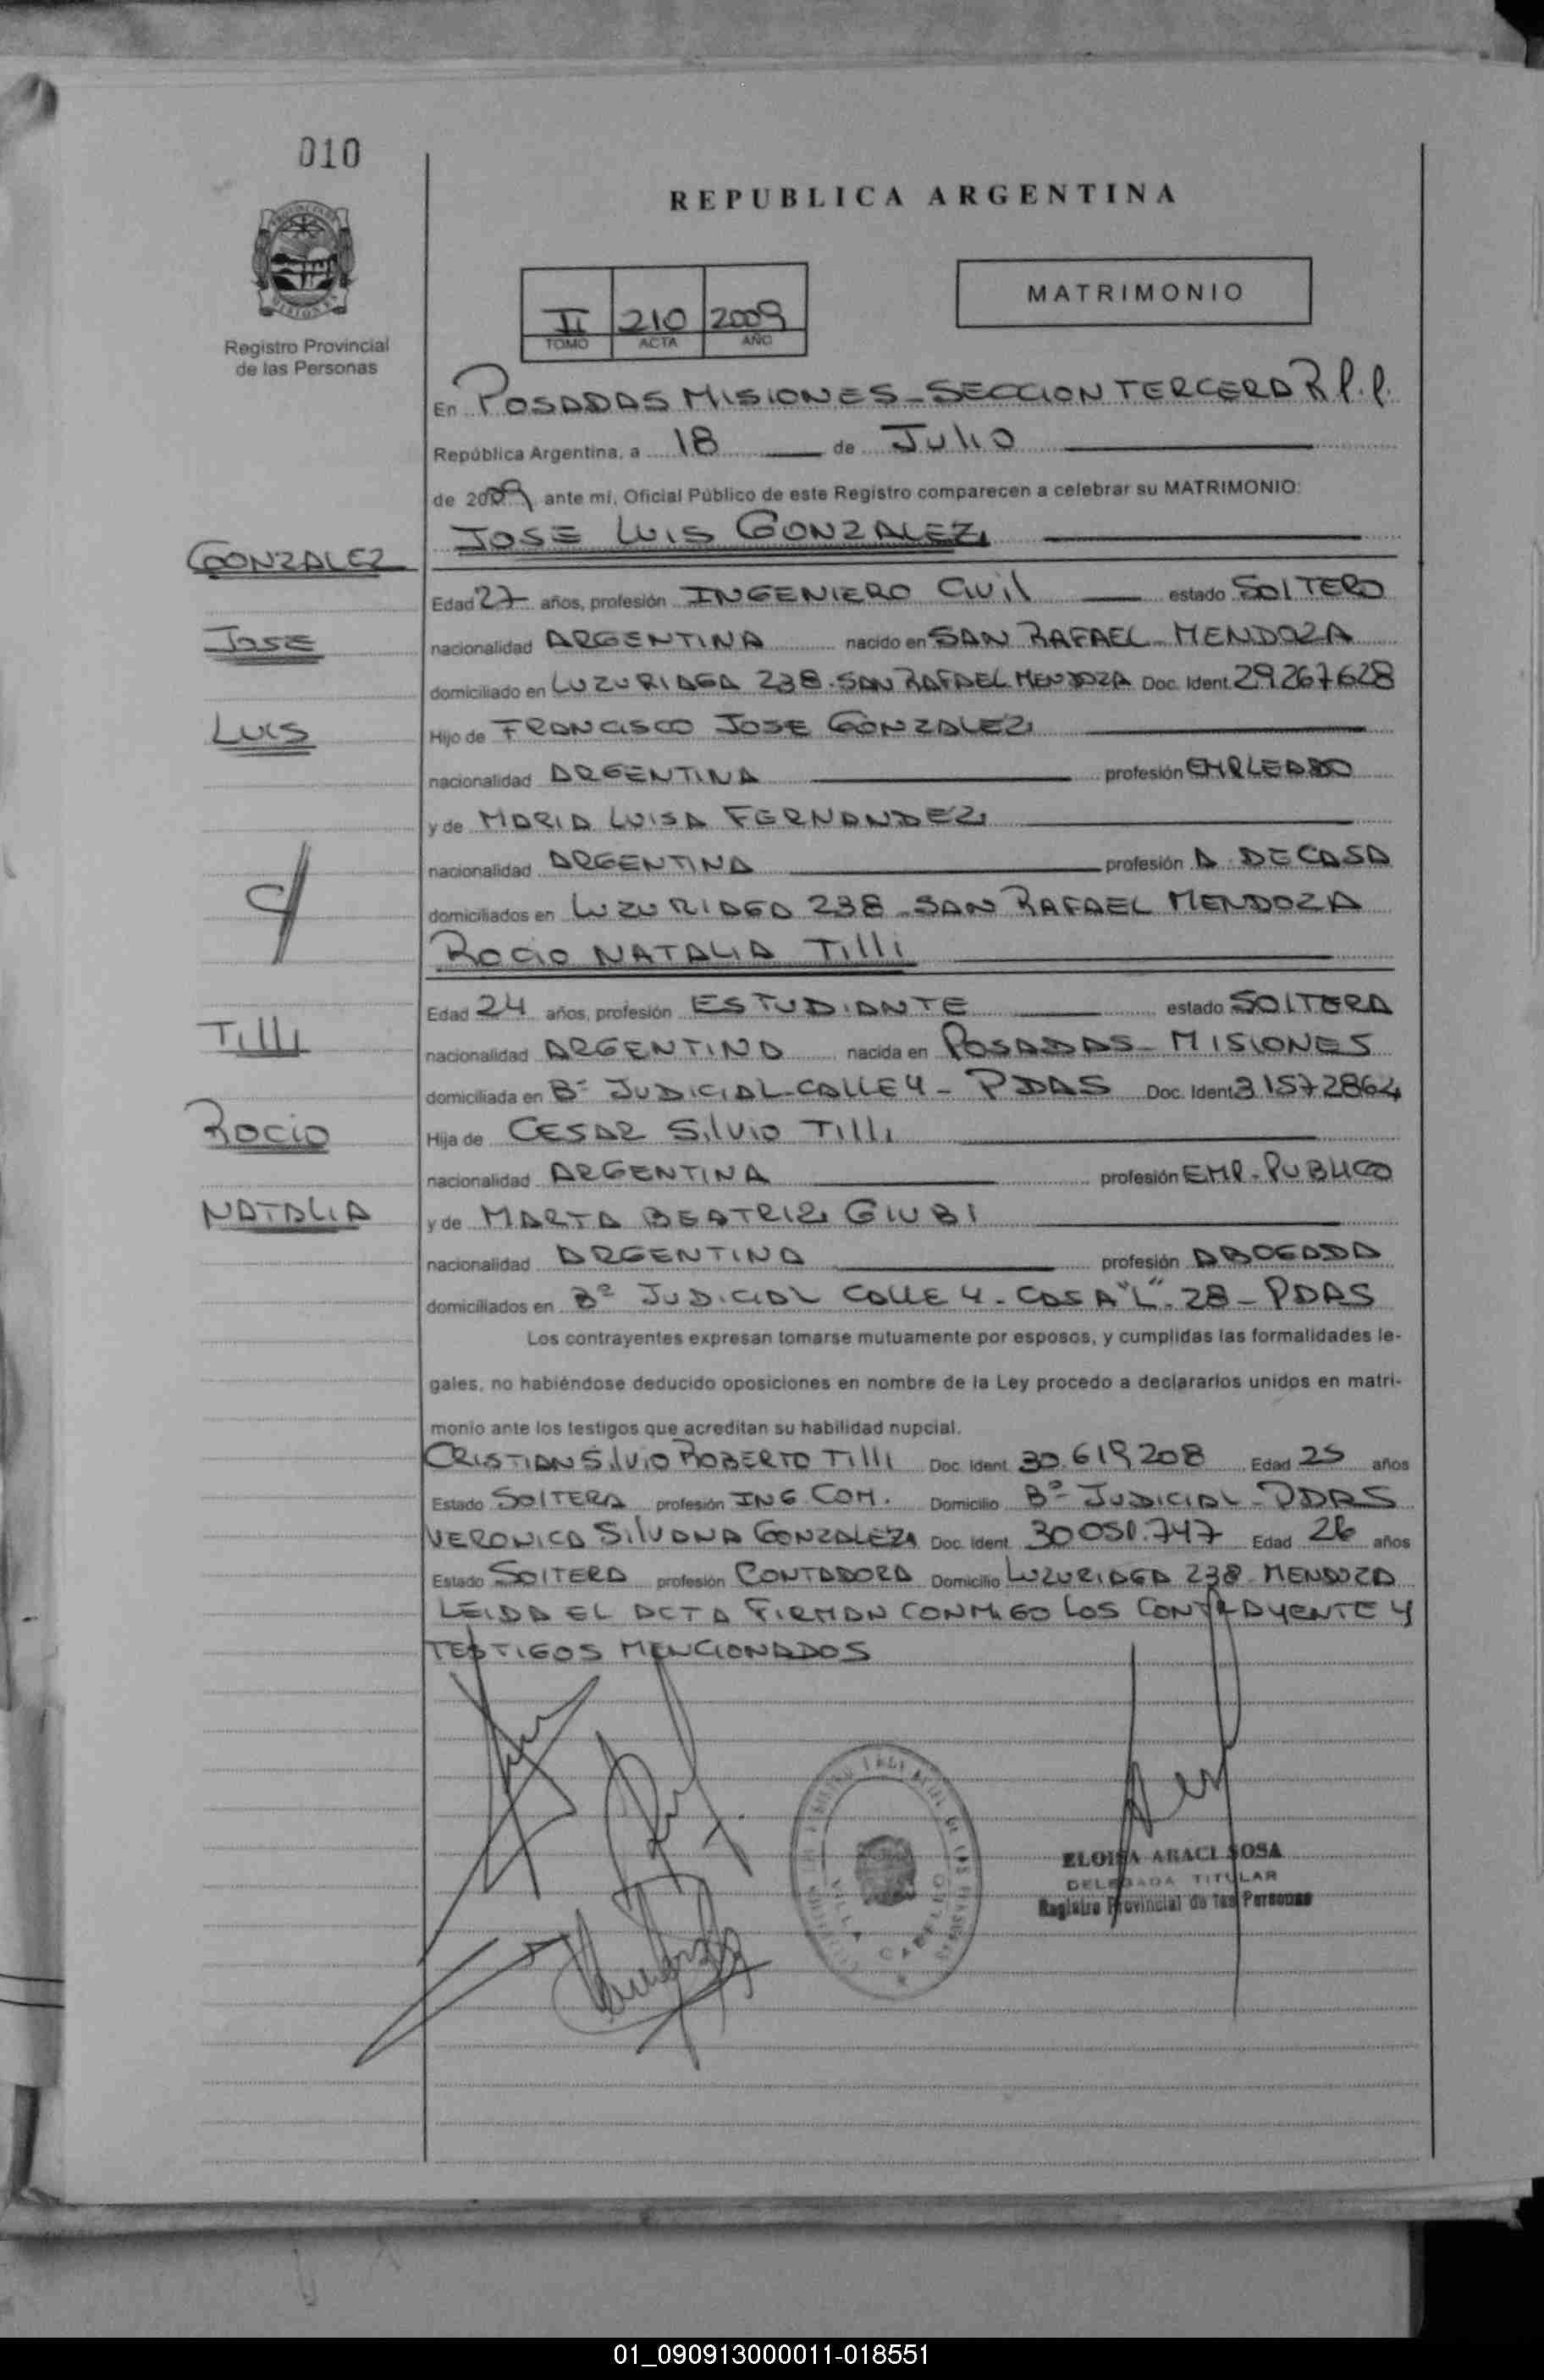 010
REPUBLICA ARGENTINA
Registro Provincial
de las Personas
II 210 2009
TOMO ACTA AÑO
MATRIMONIO
En POSADAS MISIONES - SECCION TERCERA R.P.P.
República Argentina, a 18 de JULIO
de 2009 ante mí, Oficial Público de este Registro comparecen a celebrar su MATRIMONIO:
JOSE LUIS GONZALEZ
GONZALEZ
Edad 27 años, profesión INGENIERO CIVIL estado SOLTERO
JOSE
nacionalidad ARGENTINA nacido en SAN RAFAEL - MENDOZA
domiciliado en LUZURIAGA 238 - SAN RAFAEL MENDOZA Doc. Ident. 29.267628
LUIS
Hijo de FRANCISCO JOSE GONZALEZ
nacionalidad ARGENTINA profesión EMPLEADO
y de MARIA LUISA FERNANDEZ
nacionalidad ARGENTINA profesión A. DE CASA
domiciliados en LUZURIAGA 238 - SAN RAFAEL MENDOZA
ROCIO NATALIA TILLI
Edad 24 años, profesión ESTUDIANTE estado SOLTERA
TILLI
nacionalidad ARGENTINA nacida en POSADAS - MISIONES
domiciliada en Bº JUDICIAL - CALLE 4 - PDAS Doc. Ident. 31572864
ROCIO
Hija de CESAR SILVIO TILLI
nacionalidad ARGENTINA profesión EMP. PUBLICO
NATALIA
y de MARTA BEATRIZ GIUBI
nacionalidad ARGENTINA profesión ABOGADA
domiciliados en Bº JUDICIAL CALLE 4 - CASA "L" - 28 - PDAS
Los contrayentes expresan tomarse mutuamente por esposos, y cumplidas las formalidades le-
gales, no habiéndose deducido oposiciones en nombre de la Ley procedo a declararlos unidos en matri-
monio ante los testigos que acreditan su habilidad nupcial.
CRISTIAN SILVIO ROBERTO TILLI Doc. Ident. 30.619208 Edad 25 años
Estado SOLTERA profesión ING. COM. Domicilio Bº JUDICIAL - PDAS
VERONICA SILVANA GONZALEZ Doc. Ident. 30050.747 Edad 26 años
Estado SOLTERA profesión CONTADORA Domicilio LUZURIAGA 238 - MENDOZA
LEIDA EL ACTA FIRMAN CONMIGO LOS CONTRAYENTE Y
TESTIGOS MENCIONADOS
VILLA CABELLO
ELOISA ARACI SOSA
DELEGADA TITULAR
Registro Provincial de las Personas
01_090913000011-018551